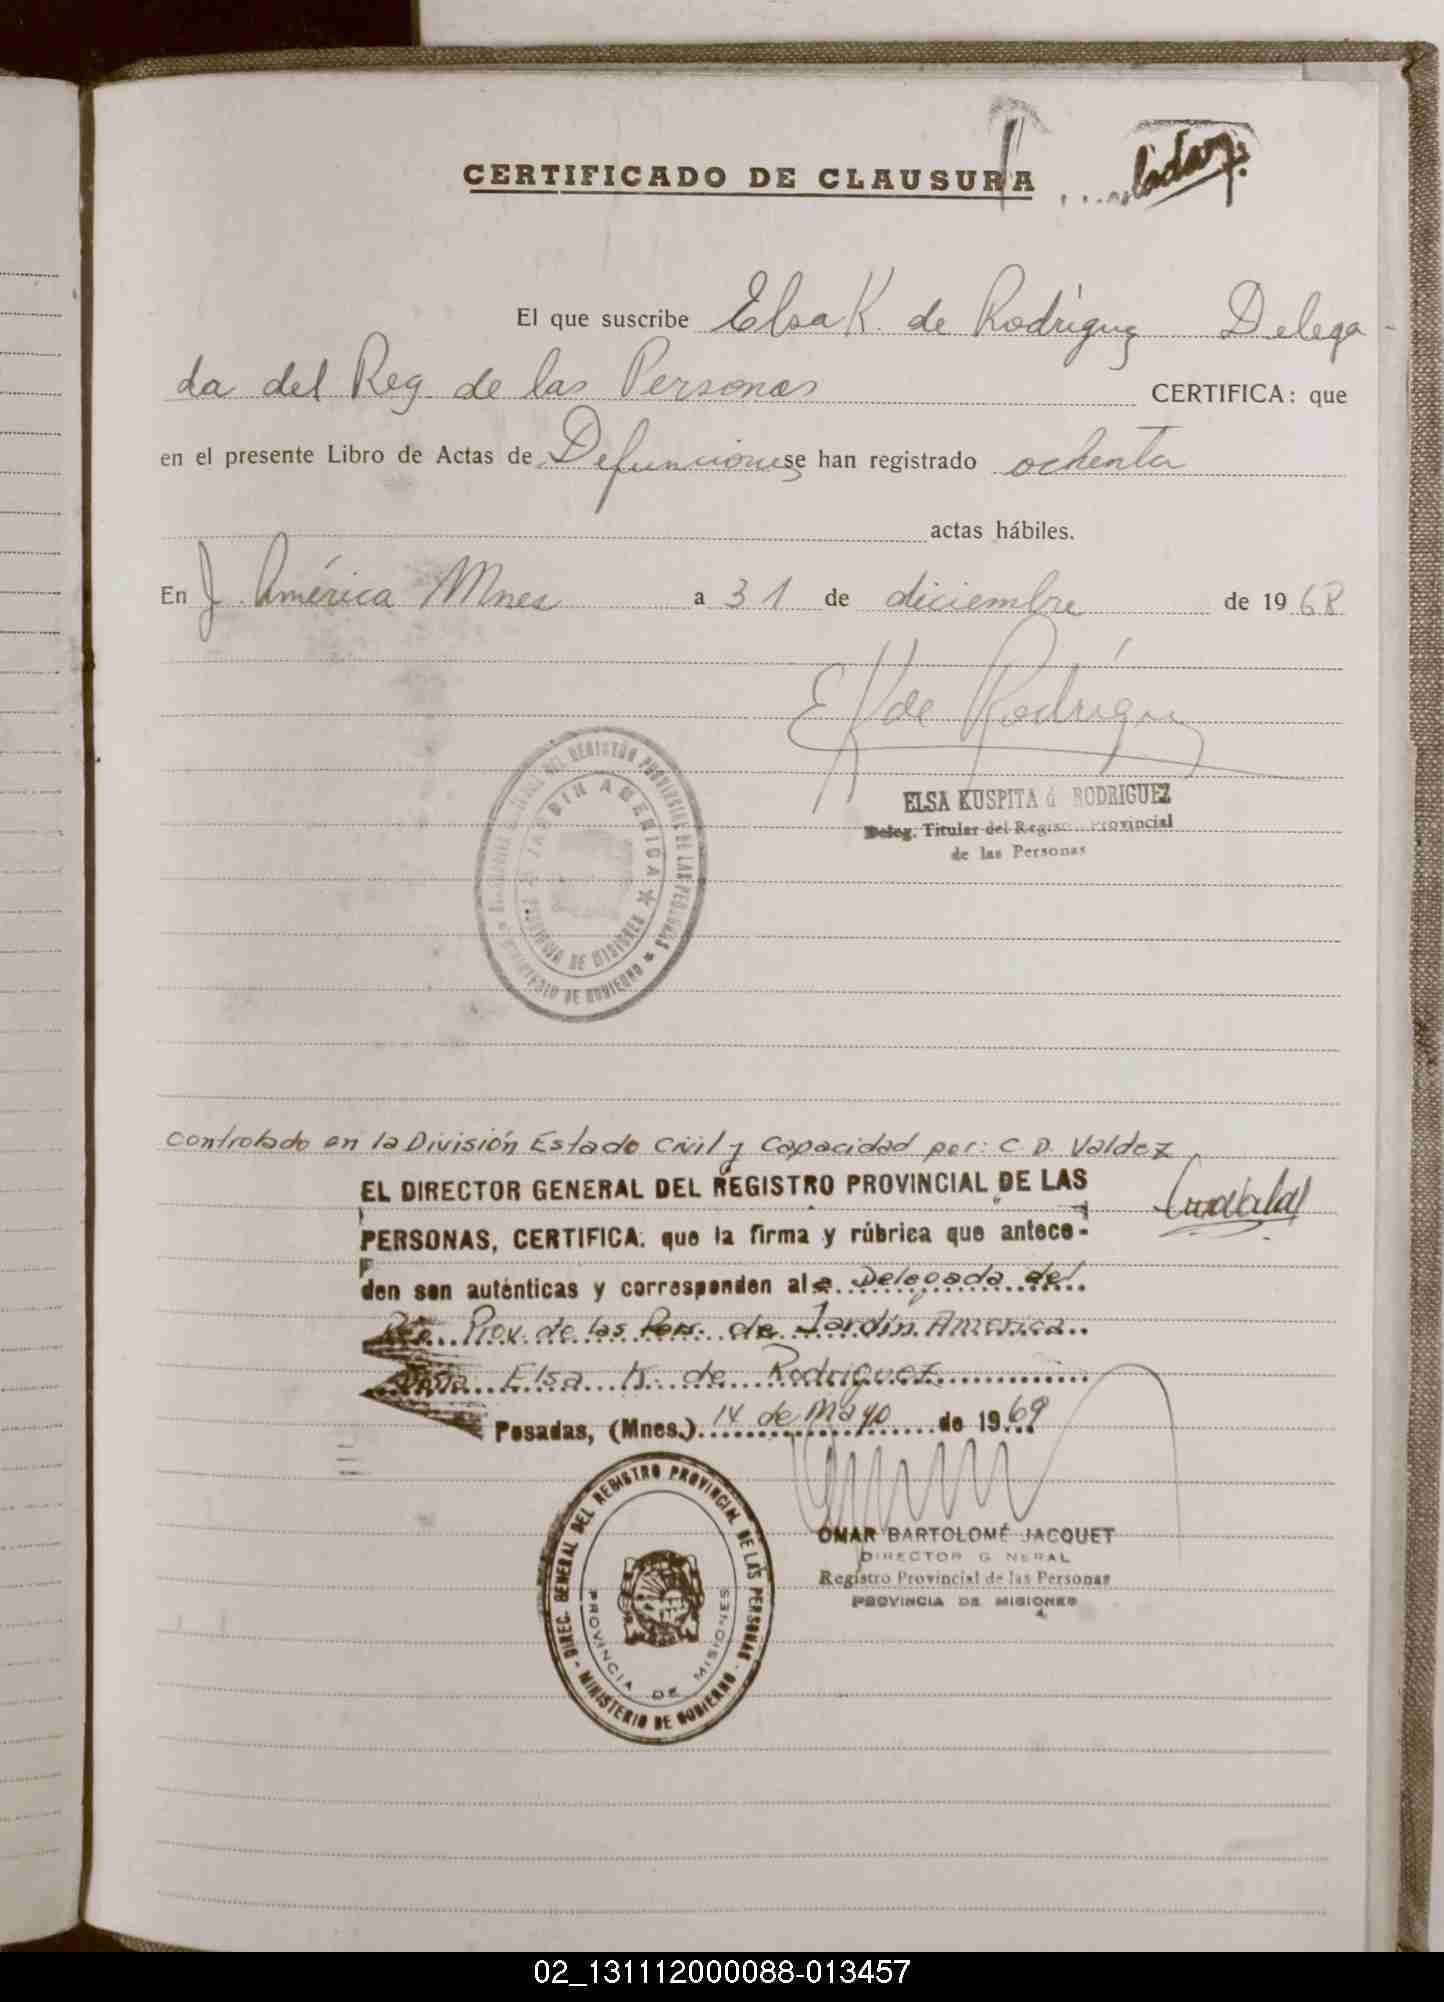 CERTIFICADO DE CLAUSURA
El que suscribe Elsa K. de Rodríguez Delega-
da del Reg. de las Personas CERTIFICA: que
en el presente Libro de Actas de Defunciones se han registrado ochenta
actas hábiles.
En J. América Mnes a 31 de diciembre de 1968
E K de Rodríguez
ELSA KUSPITA d RODRIGUEZ
Deleg. Titular del Regis Provincial
de las Personas
DEL REGISTRO PROVINCIAL DE LAS PERSONAS
JARDIN AMERICA
PROVINCIA DE MISIONES
MINISTERIO DE GOBIERNO
Controlado en la División Estado Civil y Capacidad por: C D. Valdez
EL DIRECTOR GENERAL DEL REGISTRO PROVINCIAL DE LAS
PERSONAS, CERTIFICA: que la firma y rúbrica que antece-
den son auténticas y corresponden al a Delegada del
Reg. Prov. de las Pers. de Jardín América
Doña Elsa K. de Rodriguez
Posadas, (Mnes.) 14 de Mayo de 1969
DIREC. GENERAL DEL REGISTRO PROVINCIAL DE LAS PERSONAS - MINISTERIO DE GOBIERNO -
PROVINCIA DE MISIONES
OMAR BARTOLOMÉ JACQUET
DIRECTOR G NERAL
Registro Provincial de las Personas
PROVINCIA DE MISIONES
02_131112000088-013457